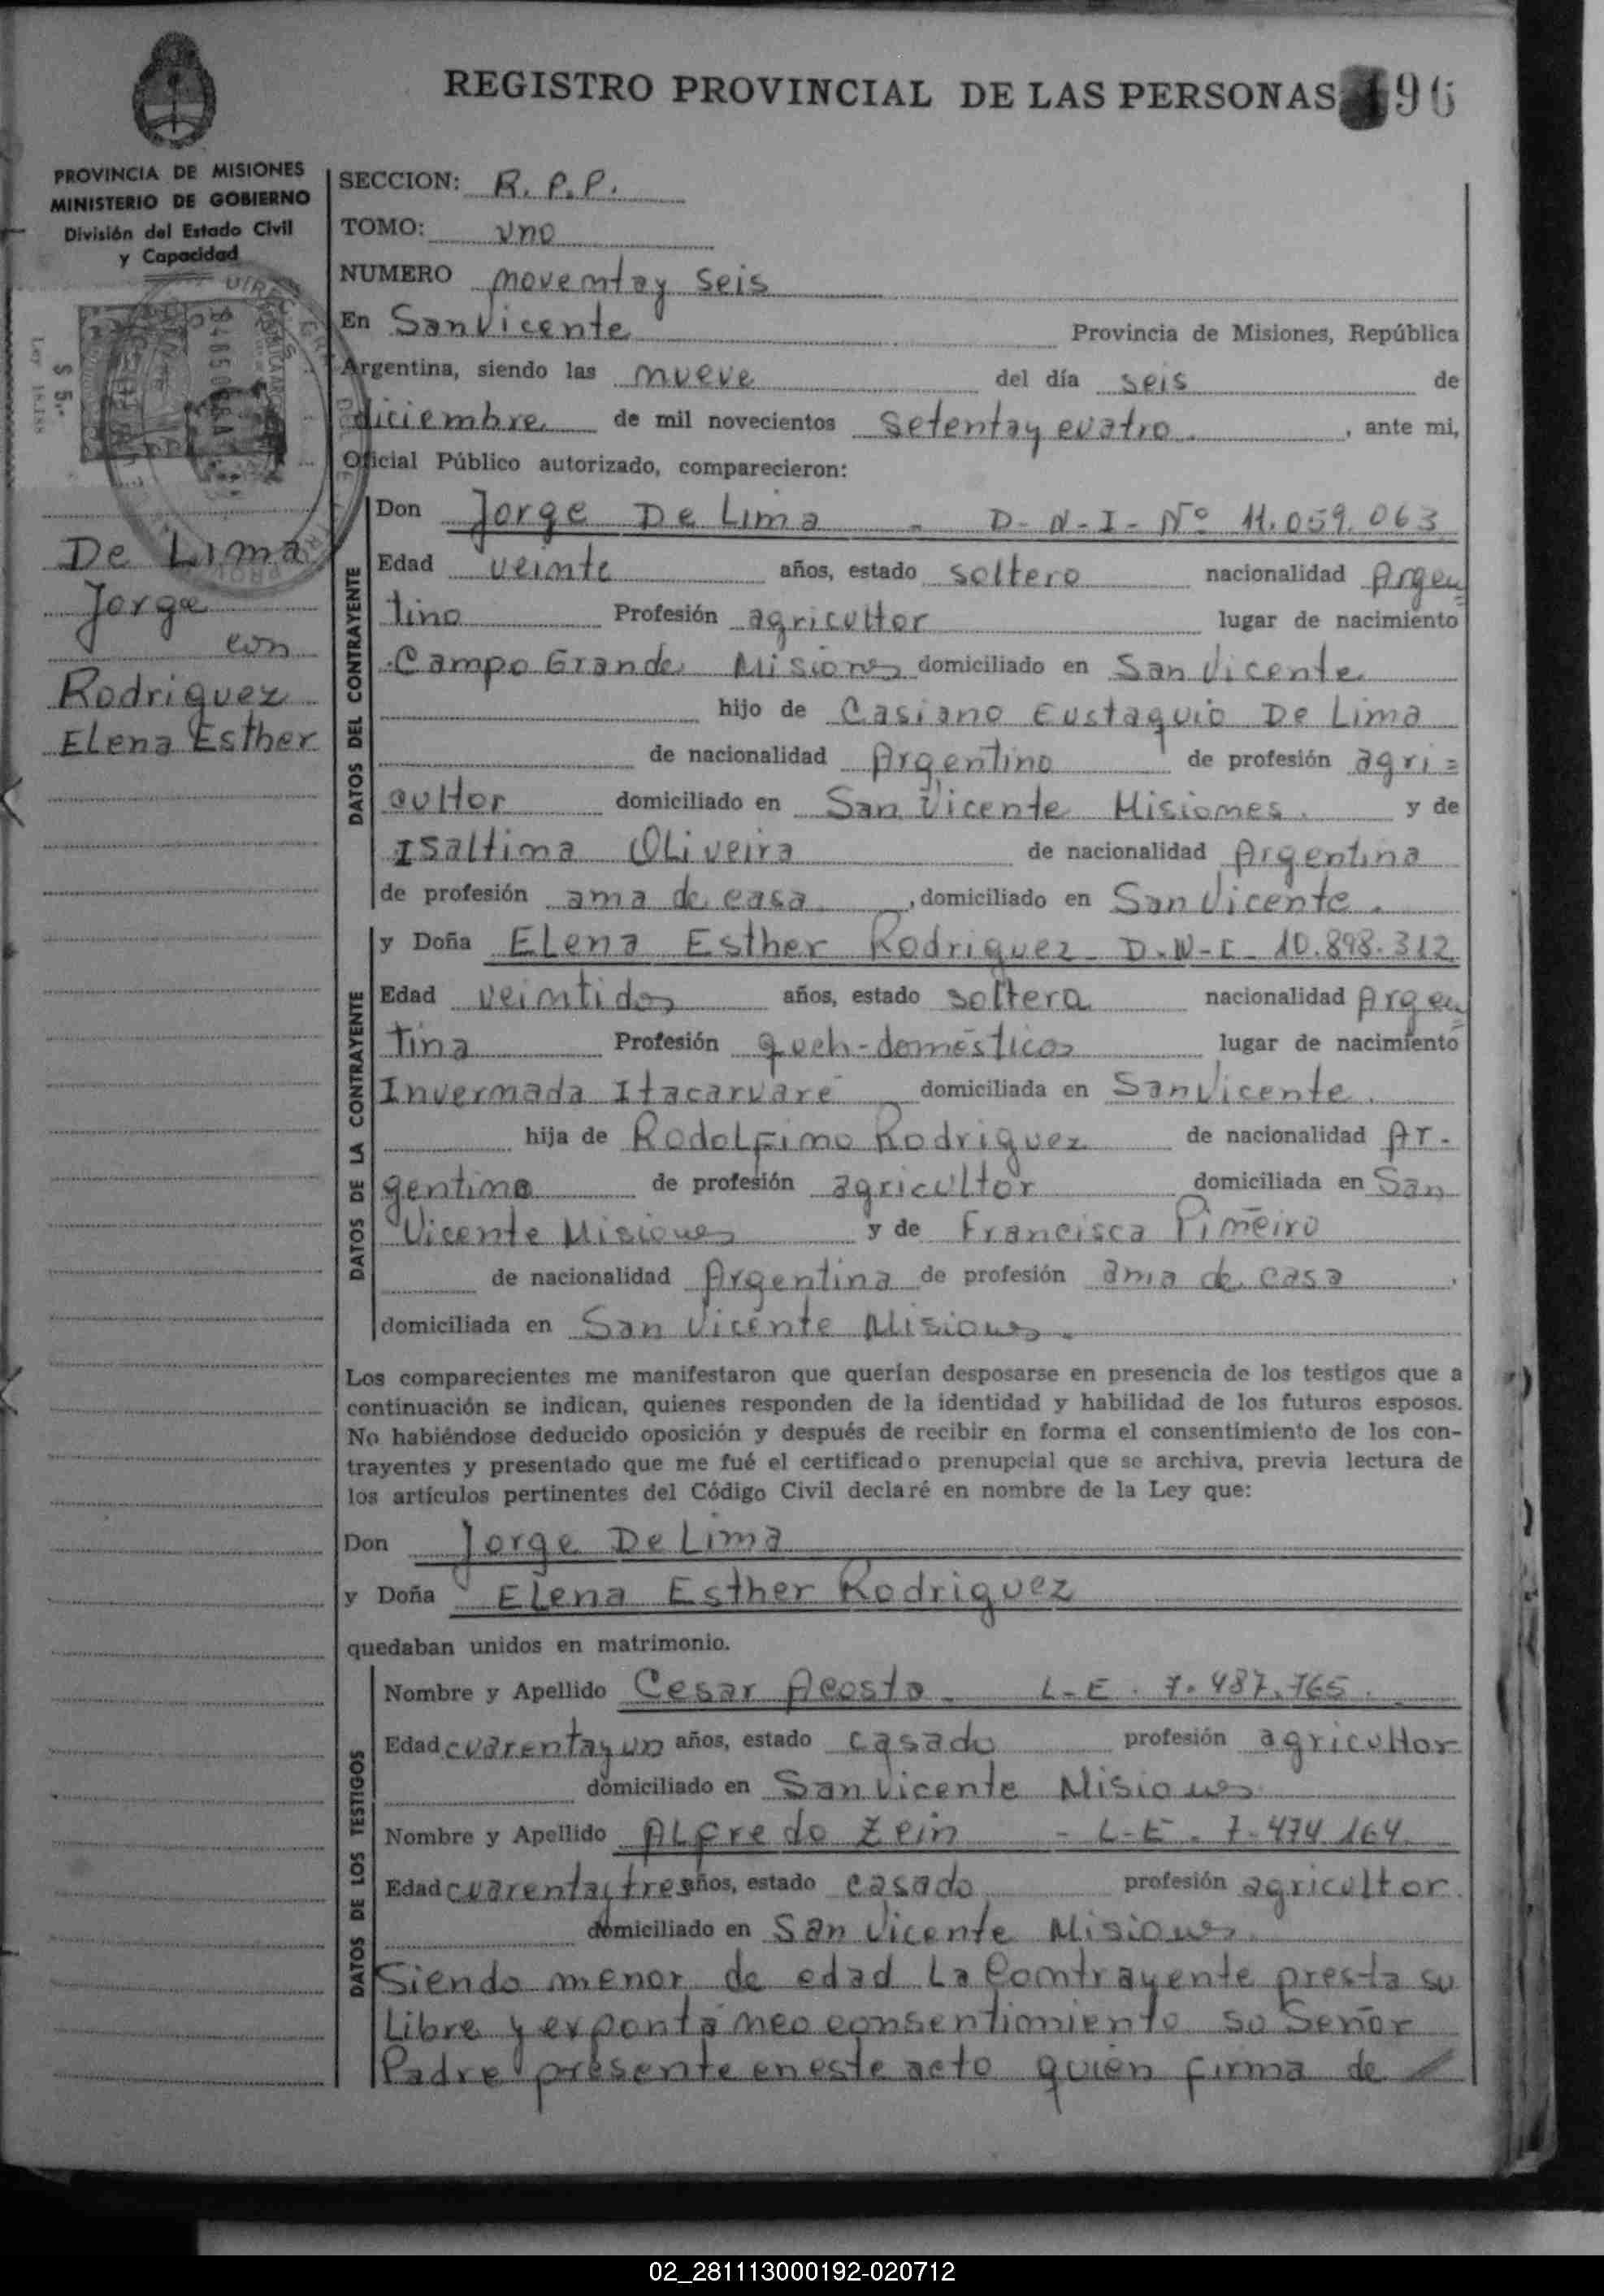 REGISTRO PROVINCIAL DE LAS PERSONAS 96
PROVINCIA DE MISIONES
MINISTERIO DE GOBIERNO
División del Estado Civil
y Capacidad
$ 5,-
Ley 18.188
De Lima
Jorge
con
Rodriguez
Elena Esther
SECCION: R.P.P.
TOMO: uno
NUMERO noventay seis
En San Vicente Provincia de Misiones, República
Argentina, siendo las nueve del día seis de
diciembre de mil novecientos setentay cuatro, ante mi,
Oficial Público autorizado, comparecieron:
DATOS DEL CONTRAYENTE
Don Jorge De Lima - D-N-I- Nº 11.059.063
Edad veinte años, estado soltero nacionalidad Argen
tino Profesión agricultor lugar de nacimiento
Campo Grande Misiones domiciliado en San Vicente
hijo de Casiano Eustaquio De Lima
de nacionalidad Argentino de profesión agri=
cultor domiciliado en San Vicente Misiones. y de
Isaltina Oliveira de nacionalidad Argentina
de profesión ama de casa, domiciliado en San Vicente.
DATOS DE LA CONTRAYENTE
y Doña Elena Esther Rodriguez - D-N-I- 10.898.312
Edad veintidos años, estado soltera nacionalidad Argen
tina Profesión queh-domésticos lugar de nacimiento
Invernada Itacaruaré domiciliada en San Vicente.
hija de Rodolfino Rodriguez de nacionalidad Ar-
gentino de profesión agricultor domiciliada en San
Vicente Misiones y de Francisca Piñeiro
de nacionalidad Argentina de profesión ama de casa
domiciliada en San Vicente Misiones.
Los comparecientes me manifestaron que querían desposarse en presencia de los testigos que a
continuación se indican, quienes responden de la identidad y habilidad de los futuros esposos.
No habiéndose deducido oposición y después de recibir en forma el consentimiento de los con-
trayentes y presentado que me fué el certificado prenupcial que se archiva, previa lectura de
los artículos pertinentes del Código Civil declaré en nombre de la Ley que:
Don Jorge De Lima
y Doña Elena Esther Rodriguez
quedaban unidos en matrimonio.
DATOS DE LOS TESTIGOS
Nombre y Apellido Cesar Acosta - L-E. 7.487.765.
Edad cuarentay un años, estado casado profesión agricultor
domiciliado en San Vicente Misiones
Nombre y Apellido Alfredo Zein - L-E. 7.474.164
Edad cuarentay tres años, estado casado profesión agricultor.
domiciliado en San Vicente Misiones.
Siendo menor de edad La Contrayente presta su
Libre y expontáneo consentimiento su Señor
Padre presente en este acto quien firma de
02_281113000192-020712